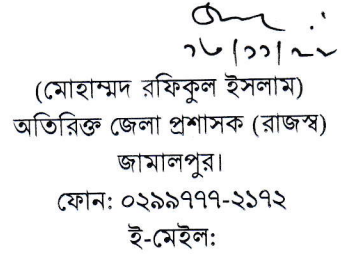 ১৬/১১/২২
(মোহাম্মদ রফিকুল ইসলাম)
অতিরিক্ত জেলা প্রশাসক (রাজস্ব)
জামালপুর।
ফোন: ০২৯৯৭৭৭-২১৭২
ই-মেইল: